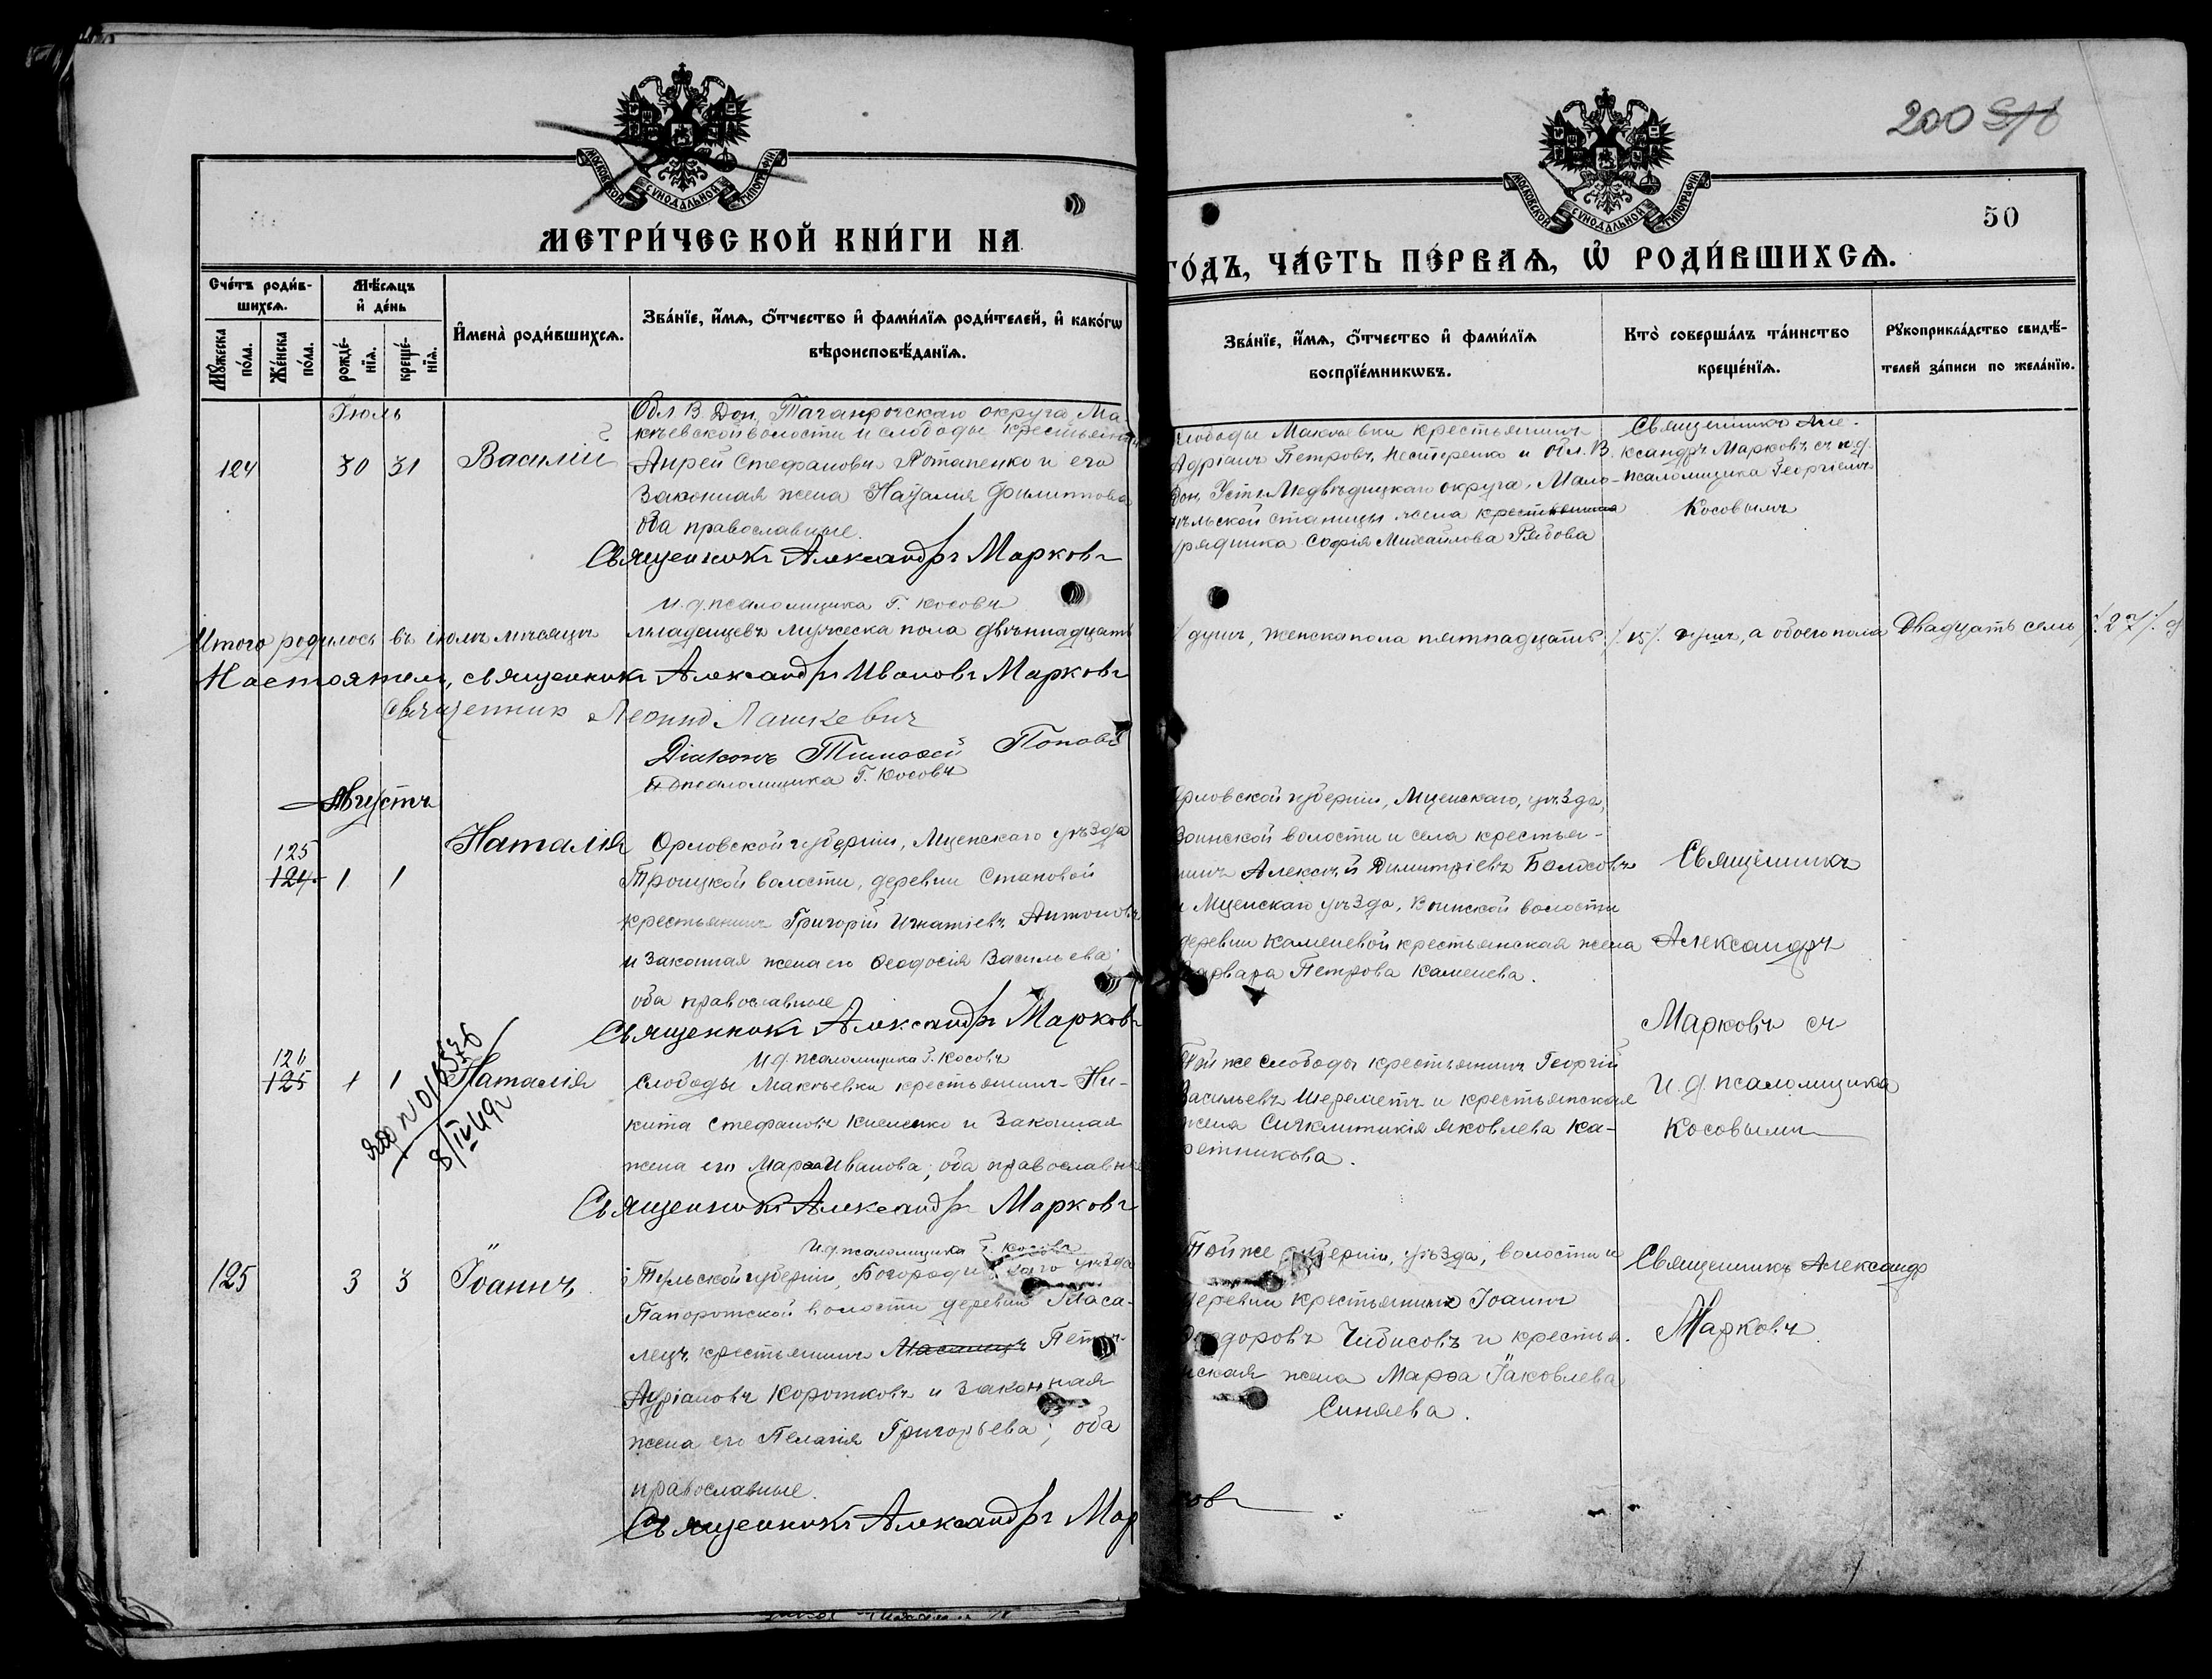 200
50
МОСКОВСКОЙ СѴНОДАЛЬНОЙ ТИПОГРАФІИ
МОСКОВСКОЙ СѴНОДАЛЬНОЙ ТИПОГРАФІИ
МЕТРИ́ЧЕСКОЙ КНИ́ГИ НА
ГО́ДЪ, ЧА́СТЬ ПЕ́РВАѦ, Ѡ҆ РОДИ́ВШИХСѦ.
Сче́тъ роди́в-
шихсѧ.
Мꙋ́жеска по́ла.
Же́нска по́ла.
Мѣ́сѧцъ
и҆ де́нь
рожде́-
нїѧ.
креще́-
нїѧ.
И҆мена̀ роди́вшихсѧ.
Зва́нїе, и҆́мѧ, ѻ҆́тчество и҆ фами́лїѧ роди́телей, и҆ како́гѡ
вѣроисповѣ́данїѧ.
Зва́нїе, и҆́мѧ, ѻ҆́тчество и҆ фами́лїѧ
воспрїе́мникѡвъ.
Кто̀ соверша́лъ та́инство
креще́нїѧ.
Рꙋкоприкла́дство свидѣ́-
телей за́писи по жела́нїю.
Іюль
124 30 31 Василій
Обл. В. Дон. Таганрогскаго округа, Ма-
кѣевской волости и слободы крестьянинъ
Анрей Стефановъ Потапенко и его
законная жена Наталія Филиппова
оба православные.
Священникъ Александръ Марковъ
И. д. псаломщика Г. Косовъ
слободы Макѣевки крестьянинъ
Адріанъ Петровъ Нестеренко и Обл. В.
Дон. Усть-Медвѣдицкаго округа, Мало-
дѣльской станицы жена крестьянина
урядника Софія Михайлова Рябова
Священникъ Але-
ксандръ Марковъ съ и. д.
псаломщика Георгіемъ
Косовымъ
Итого родилось въ іюлѣ мѣсяцѣ младенцевъ мужеска пола двѣнадцать
душъ, женска пола пятнадцать /.15/. душъ, а обоего пола Двадцать семь /.27/. д
Настоятель, священникъ Александръ Ивановъ Марковъ
Священник Леонид Лашкевич
Діаконъ Тимоѳей Поповъ
И д псаломщика Г. Косовъ
Августъ
125
124 1 1 Наталія
Орловской губерніи, Мценскаго уѣзда
Троицкой волости, деревни Становой
крестьянинъ Григорій Игнатіевъ Антоновъ
и законная жена его Ѳеодосія Васильева
оба православные
Священникъ Александръ Марковъ
И д. псаломщика Г. Косовъ
Орловской губерніи, Мценскаго, уѣзда,
Воинской волости и села крестья-
нинъ Алексѣй Димитріевъ
и Мценскаго уѣзда, Воинской волости
деревни Каменевой крестьянская жена
Варвара Петрова Каменева.
Священникъ
Александръ
Марковъ съ
и. д. псаломщика
Косовымъ
126
125 1 1 Наталія
8/IV 49г
Слободы Макѣевки крестьянинъ Ни-
кита Стефановъ и законная
жена его Марѳа Иванова; оба православные
Священникъ Александръ Марковъ
И. д. псаломщика Г. Косовъ
Той же слободы крестьянинъ Георгій
Васильевъ Шереметъ и крестьянская
жена Сигклитикія Яковлева Ка-
ретникова.
125 3 3 Іоаннъ
Тульской губерніи, Богородицкаго уѣзда
Папоротской волости деревни Маса-
лецъ крестьянинъ Петръ
Адріановъ Коротковъ и законная
жена его Пелагія Григорьева; оба
православные.
Священникъ Александръ Мар
ковъ
Той же губерніи, уѣзда, волости и
деревни крестьянинъ Іоаннъ
Ѳеодоровъ Чибисовъ и крестья-
нская жена Марѳа Іаковлева
Синяева.
Священникъ Александръ
Марковъ